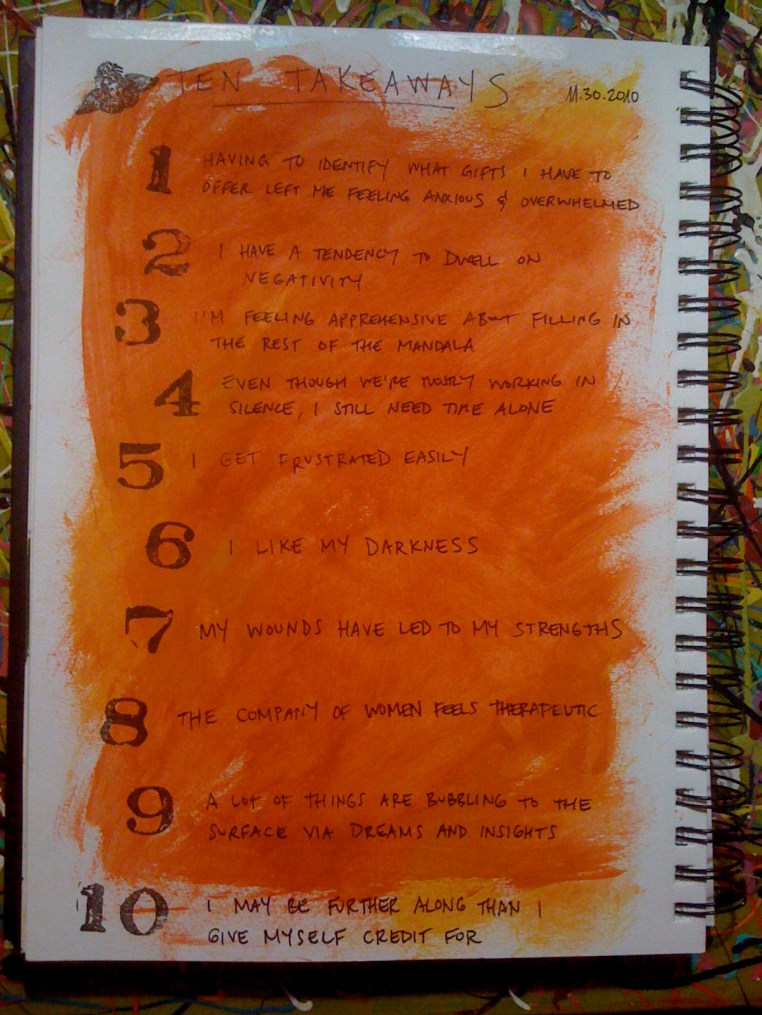 TEN TAKEAWAYS 11.30.2010
1 HAVING TO IDENTIFY WHAT GIFTS I HAVE TO
OFFER LEFT ME FEELING ANXIOUS & OVERWHELMED
2 I HAVE A TENDENCY TO DWELL ON
NEGATIVITY
3 I'M FEELING APPREHENSIVE ABOUT FILLING IN
THE REST OF THE MANDALA
4 EVEN THOUGH WE'RE MOSTLY WORKING IN
SILENCE, I STILL NEED TIME ALONE
5 I GET FRUSTRATED EASILY
6 I LIKE MY DARKNESS
7 MY WOUNDS HAVE LED TO MY STRENGTHS
8 THE COMPANY OF WOMEN FEELS THERAPEUTIC
9 A LOT OF THINGS ARE BUBBLING TO THE
SURFACE VIA DREAMS AND INSIGHTS
10 I MAY BE FURTHER ALONG THAN I
GIVE MYSELF CREDIT FOR